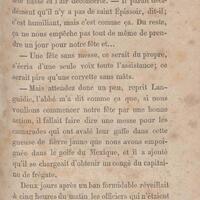 leur masse et l'air déconcerté. — Il paraît déci-
dément qu'il n'y a pas de saint Épissoir, dit-il;
c'est humiliant, mais c'est comme ça. Du reste,
ça ne nous empêche pas tout de même de pren-
dre un jour pour notre fête et...
— Une fête sans messe, ce serait du propre,
s'écria d'une seule voix toute l'assistance; ce
serait pire qu'une corvette sans mâts.
— Mais attendez donc un peu, reprit Lan-
guidic, l'abbé m'a dit comme ça que, si nous
voulions commencer notre fête par une bonne
action, il fallait faire dire une messe pour les
camarades qui ont avalé leur gaffe dans cette
gueuse de fièvre jaune que nous avons empoi-
gnée dans le golfe du Mexique, et il a ajouté
qu'il se chargeait d'obtenir un congé du capitai-
ne de frégate.
Deux jours après un ban formidable réveillait
à cinq heures du matin les officiers qui n'étaient